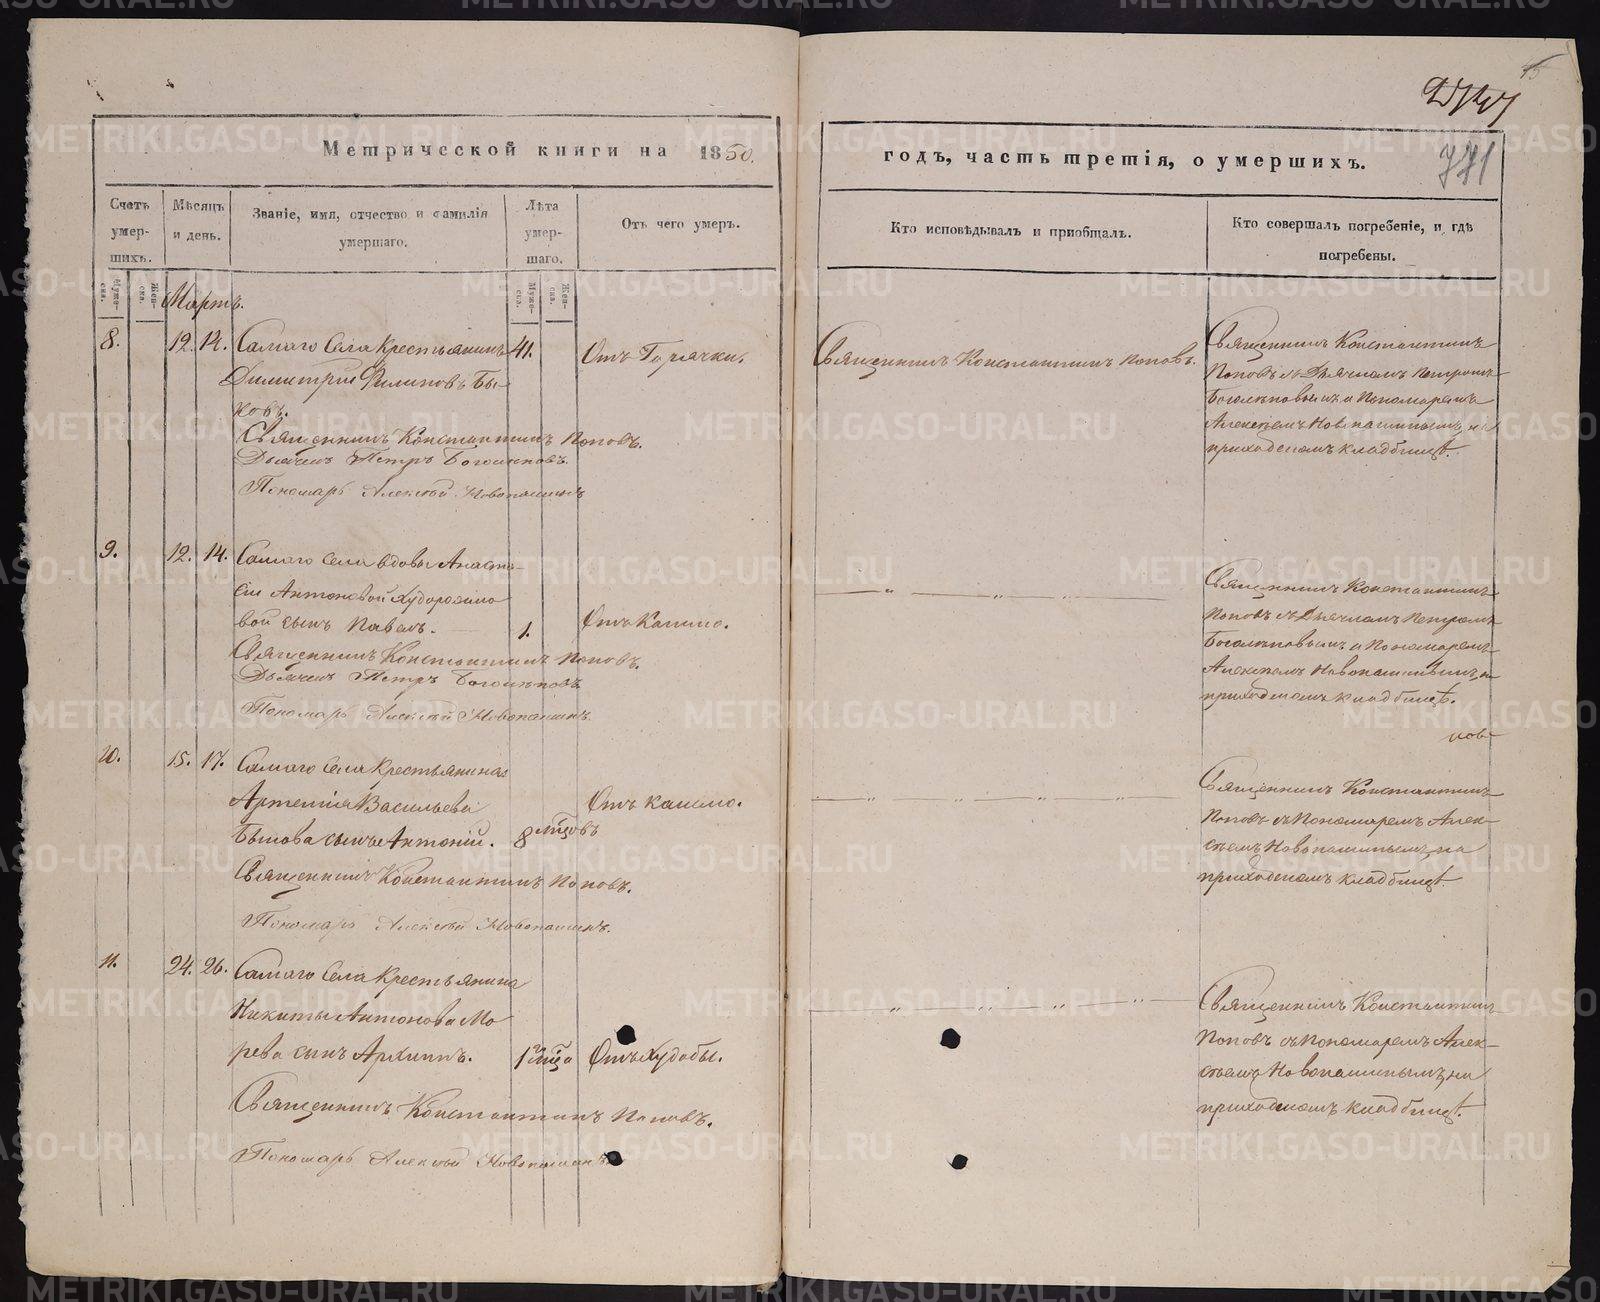 Метрической книги на 1850.
Счетъ умершихъ.
Мѣсяцъ и день.
Званіе, имя, отчество и фамилія умершаго.
Лѣта умершаго.
Отъ чего умеръ.
Мужеска. Женска.
Мужеска. Женска.
Мартъ.
8. 12. 14. Самаго Села Крестьянинъ 41. Отъ Горячки.
Димитрій Филиповъ Бы-
ковъ.
Священникъ Константинъ Поповъ.
Дьячекъ Петръ Боголѣповъ.
Пономарь Алексѣй Новопашинъ
9. 12. 14. Самаго Села вдовы Анаста-
сіи Антоновой
вой сынъ Павелъ. 1. Отъ Кашлю.
Священникъ Константинъ Поповъ.
Дьячекъ Петръ Боголѣповъ
Пономарь Алексѣй Новопашинъ.
10. 15. 17. Самаго Села Крестьянина
Артемія Васильева Отъ кашлю.
Быкова сынъ Антоній. 8 мцовъ
Священникъ Константинъ Поповъ.
Пономарь Алексѣй Новопашинъ.
11. 24. 26. Самаго Села Крестьянина
Никиты Антонова Мо
рева сынъ Архипъ. 1 мца Отъ Худобы.
Священникъ Константинъ Поповъ.
Пономарь Алексѣй Новопашинъ
15
771
годъ, часть третія, о умершихъ.
Кто исповѣдывалъ и пріобщалъ.
Кто совершалъ погребеніе, и гдѣ погребены.
Священникъ Константинъ Поповъ.
Священникъ Константинъ
Поповъ съ Дьячкомъ Петромъ
Боголѣповымъ и Пономаремъ
Алексѣемъ Новопашинымъ, на
приходскомъ кладбищѣ.
Священникъ Константинъ
Поповъ съ Дьячкомъ Петромъ
Боголѣповымъ и Пономаремъ
Алексѣемъ Новопашинымъ, на
приходскомъ кладбищѣ.
пов-
Священникъ Константинъ
Поповъ съ Пономаремъ Алек-
сѣемъ Новопашинымъ, на
приходскомъ кладбищѣ.
Священникъ Константинъ
Поповъ съ Пономаремъ Алек-
сѣемъ Новопашинымъ, на
приходскомъ кладбищѣ.
METRIKI.GASO-URAL.RU